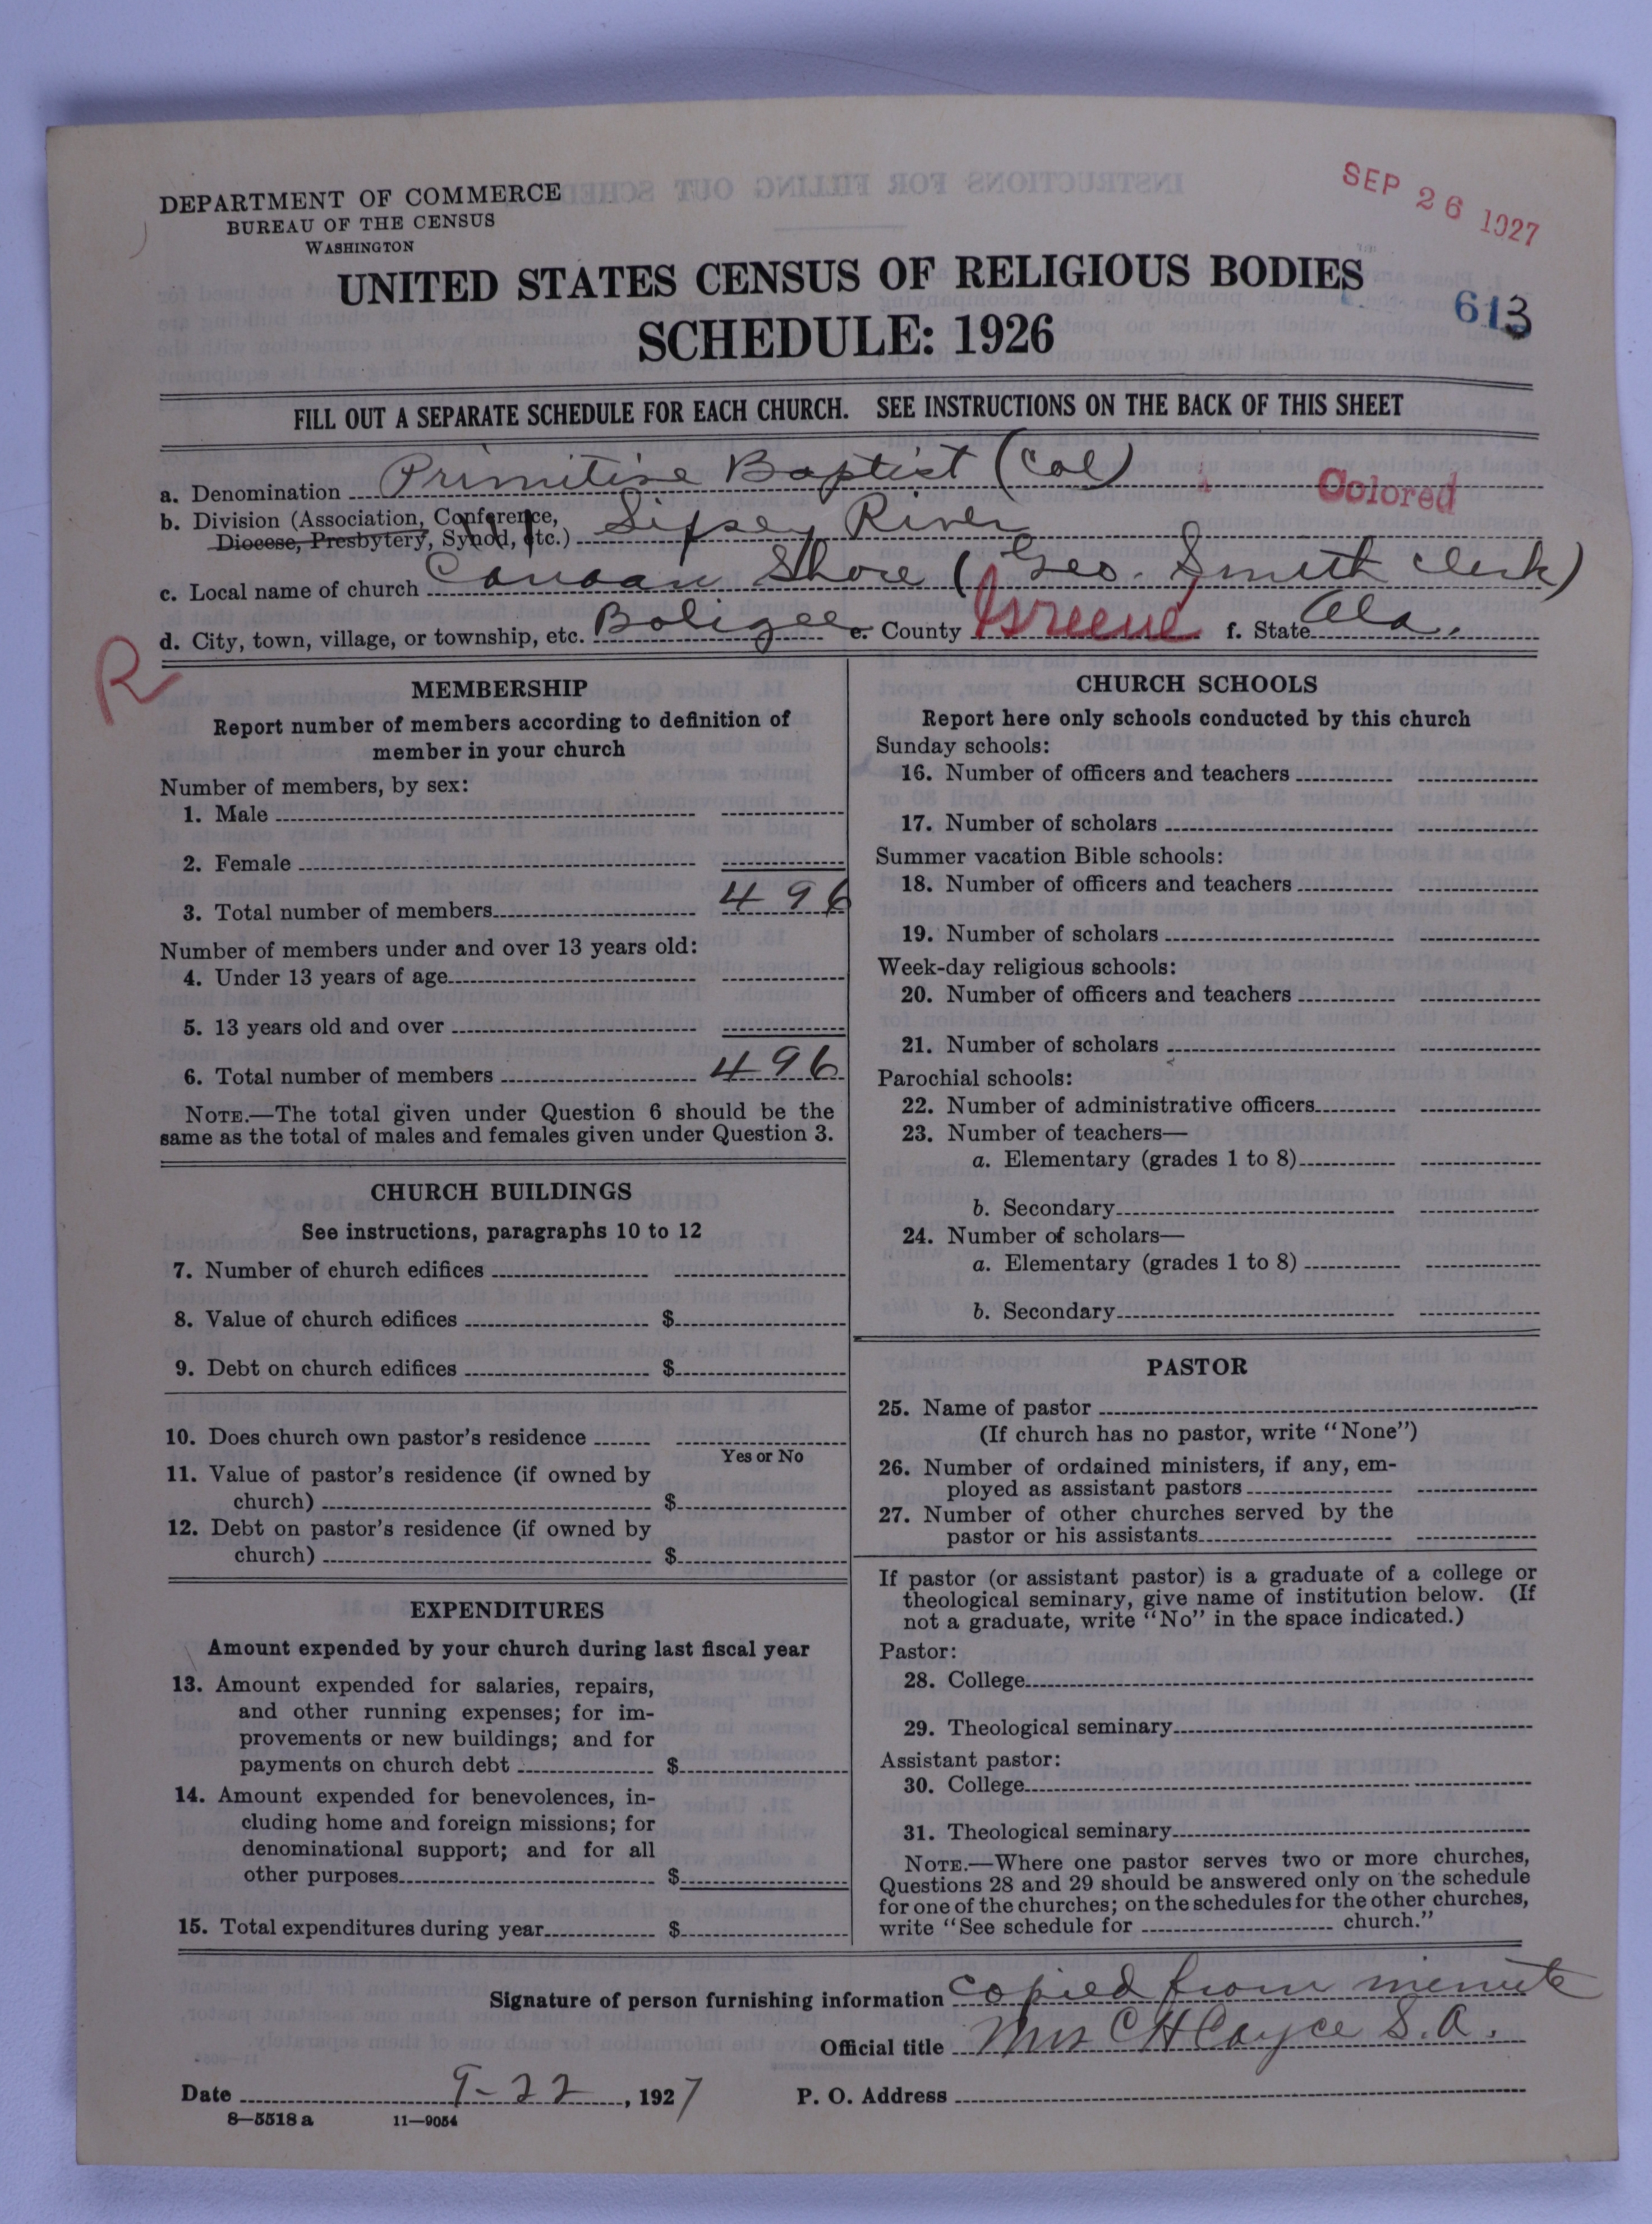 DEPARTMENT OF COMMERCE
BUREAU OF THE CENSUS
WASHINGTON
SEP 26 1927
UNITED STATES CENSUS OF RELIGIOUS BODIES
SCHEDULE: 1926
613
FILL OUT A SEPARATE SCHEDULE FOR EACH CHURCH. SEE INSTRUCTIONS ON THE BACK OF THIS SHEET
a. Denomination Primitive Baptist (Col) Colored
b. Division (Association, Conference, Diocese, Presbytery, Synod, etc.) Sipsey River
c. Local name of church Canaan Shore (Geo. Smith Clerk)
d. City, town, village, or township, etc. Boligee e. County Greene f. State Ala.
R
MEMBERSHIP
Report number of members according to definition of
member in your church
Number of members, by sex:
1. Male
2. Female
3. Total number of members 496
Number of members under and over 13 years old:
4. Under 13 years of age
5. 13 years old and over
6. Total number of members 496
NOTE.—The total given under Question 6 should be the
same as the total of males and females given under Question 3.
CHURCH BUILDINGS
See instructions, paragraphs 10 to 12
7. Number of church edifices
8. Value of church edifices $
9. Debt on church edifices $
10. Does church own pastor's residence
Yes or No
11. Value of pastor's residence (if owned by
church) $
12. Debt on pastor's residence (if owned by
church) $
EXPENDITURES
Amount expended by your church during last fiscal year
13. Amount expended for salaries, repairs,
and other running expenses; for im-
provements or new buildings; and for
payments on church debt $
14. Amount expended for benevolences, in-
cluding home and foreign missions; for
denominational support; and for all
other purposes $
15. Total expenditures during year $
CHURCH SCHOOLS
Report here only schools conducted by this church
Sunday schools:
16. Number of officers and teachers
17. Number of scholars
Summer vacation Bible schools:
18. Number of officers and teachers
19. Number of scholars
Week-day religious schools:
20. Number of officers and teachers
21. Number of scholars
Parochial schools:
22. Number of administrative officers
23. Number of teachers—
a. Elementary (grades 1 to 8)
b. Secondary
24. Number of scholars—
a. Elementary (grades 1 to 8)
b. Secondary
PASTOR
25. Name of pastor
(If church has no pastor, write "None")
26. Number of ordained ministers, if any, em-
ployed as assistant pastors
27. Number of other churches served by the
pastor or his assistants
If pastor (or assistant pastor) is a graduate of a college or
theological seminary, give name of institution below. (If
not a graduate, write "No" in the space indicated.)
Pastor:
28. College
29. Theological seminary
Assistant pastor:
30. College
31. Theological seminary
NOTE.—Where one pastor serves two or more churches,
Questions 28 and 29 should be answered only on the schedule
for one of the churches; on the schedules for the other churches,
write "See schedule for church."
Signature of person furnishing information copied from minute
Official title Mrs C H Cayce S. A.
Date 9-22, 1927 P. O. Address
8—5518 a 11—9054